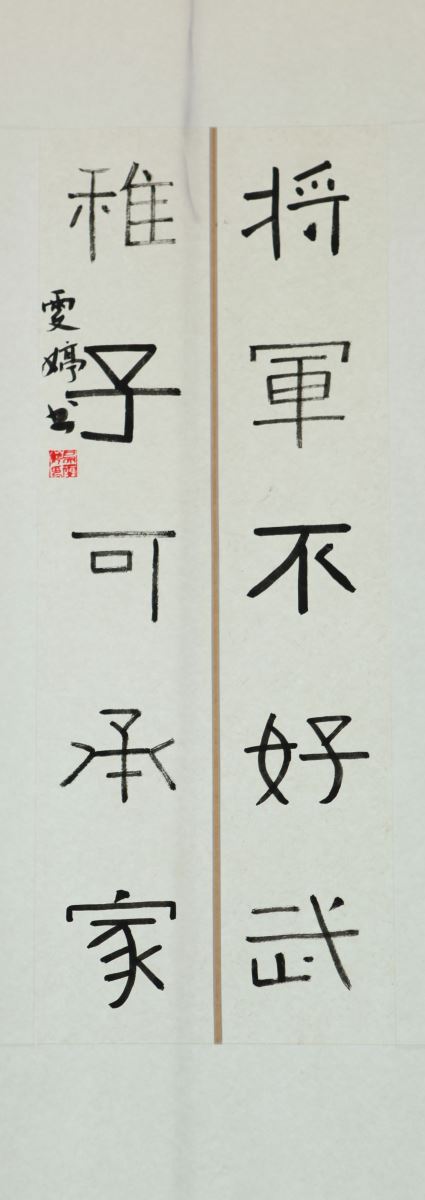 将軍不好武
稚子可承家
雯婷书